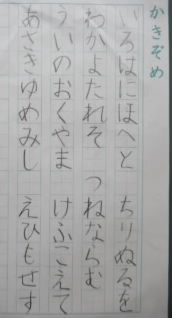 かきぞめ
いろはにほへと ちりぬるを
わかよたれそ つねならむ
うゐのおくやま けふこえて
あさきゆめみし ゑひもせす